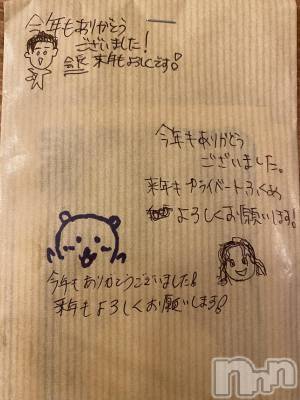 今年もありがとう
ございました!
会長 来年もよろしくです!
今年もありがとう
ございました。
来年もプライベートふくめ
よろしくお願いします!
今年もありがとうございました!
来年もよろしくお願いします!
nn